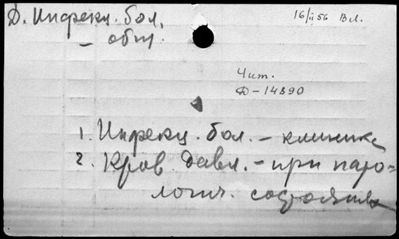 Д. Инфекц. бол.
– общ.
16/II 56 Вл.
Чит.
Ф – 14390
1. Инфекц. бол. – клиника
2. Кров. давл. – при пато-
логич. состояниях